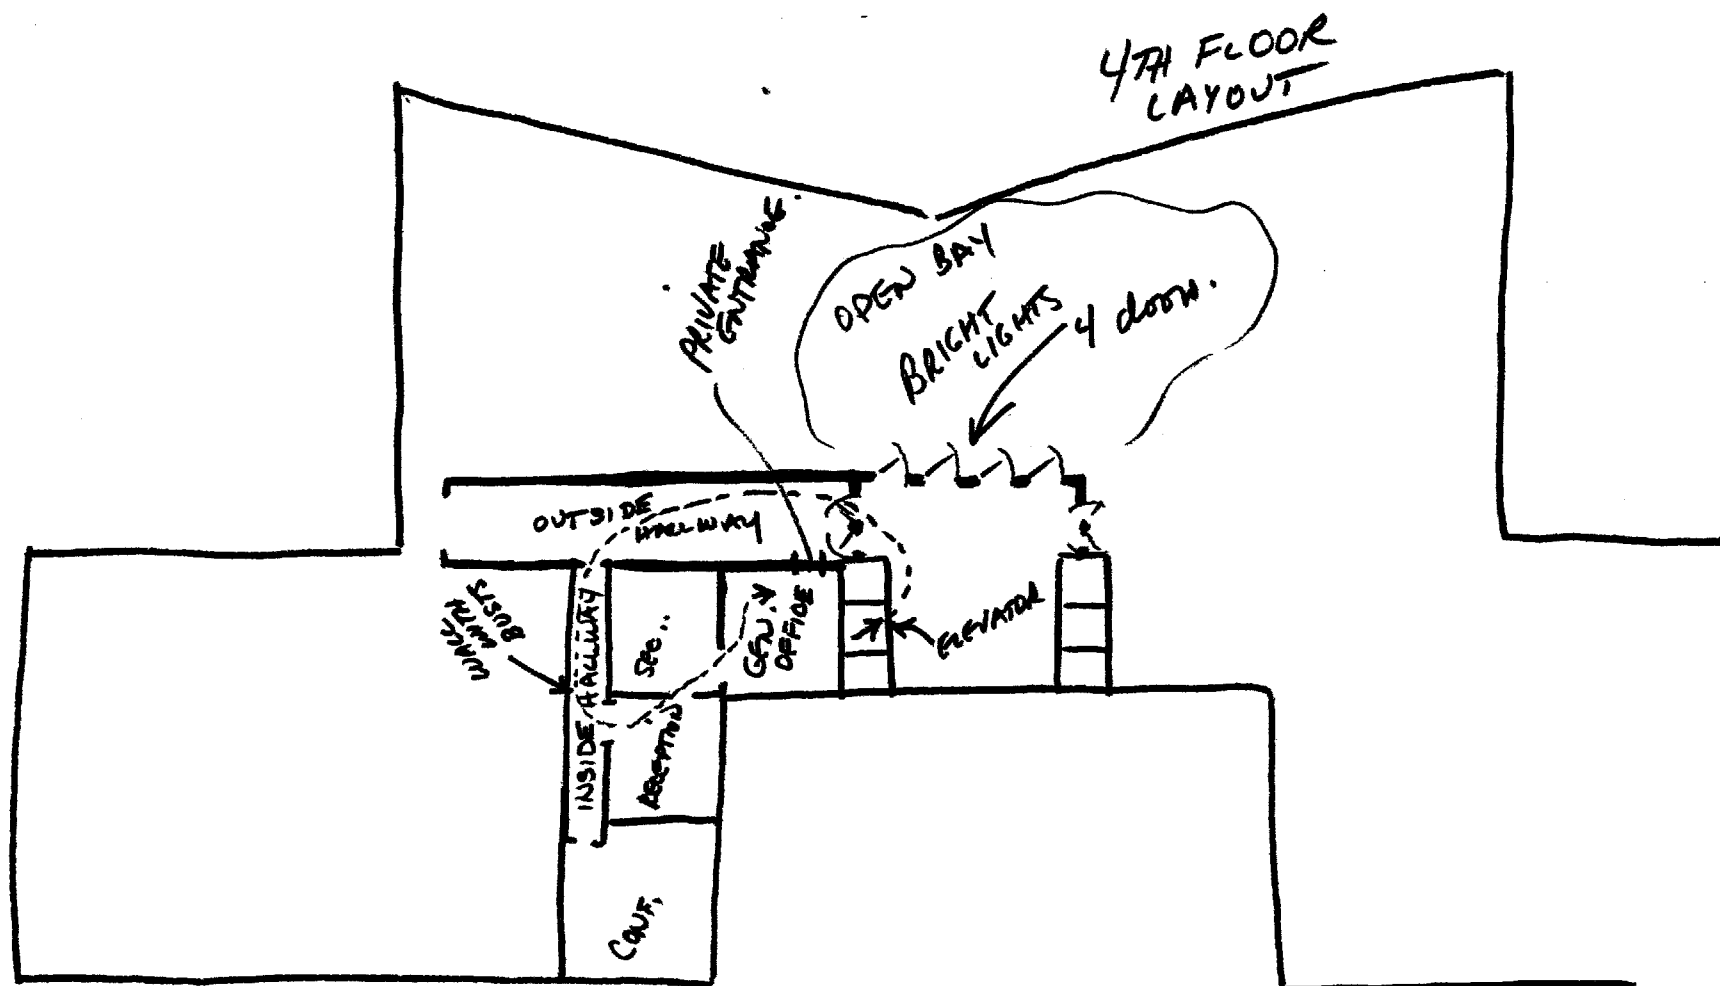 4TH FLOOR
LAYOUT
PRIVATE
ENTRANCE.
OPEN BAY
BRIGHT
LIGHTS
4 doors.
OUTSIDE
HALLWAY
WALLS
WITH
BUSTS
INSIDE HALLWAY
SEC..
GEN.
OFFICE
ELEVATOR
RECEPTION
CONF.